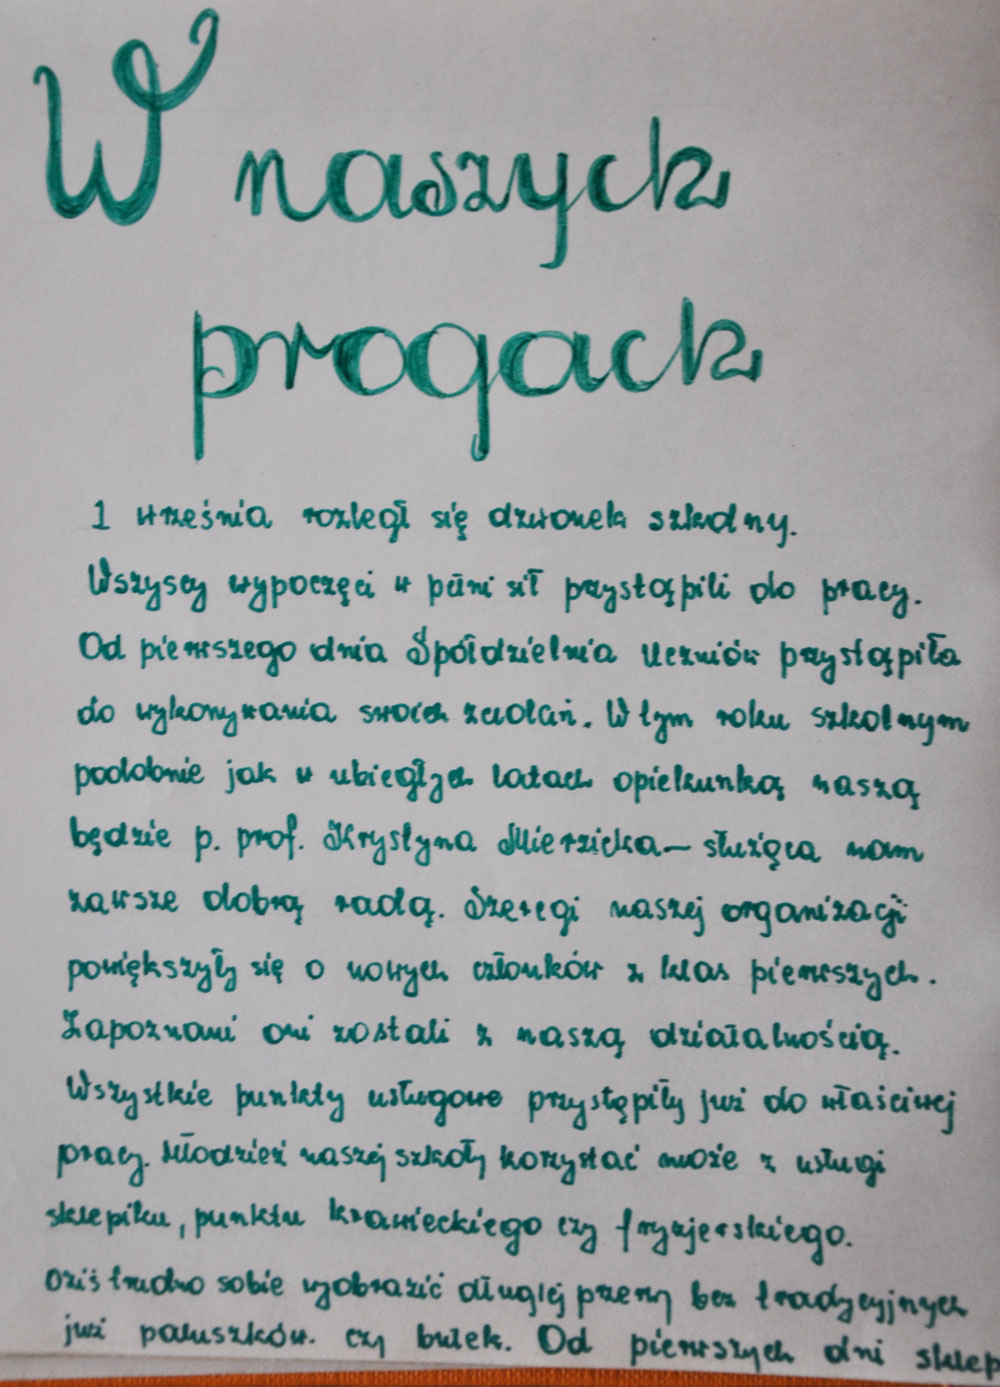 W naszych
progach
1 września rozległ się dzwonek szkolny.
Wszyscy wypoczęci w pełni sił przystąpili do pracy.
Od pierwszego dnia Spółdzielnia Uczniów przystąpiła
do wykonywania swoich zadań. W tym roku szkolnym
podobnie jak w ubiegłych latach opiekunką naszą
będzie p. prof. Krystyna Mierzicka – służąca nam
zawsze dobrą radą. Szeregi naszej organizacji
powiększyły się o nowych członków z klas pierwszych.
Zapoznani oni zostali z naszą działalnością.
Wszystkie punkty usługowe przystępiły już do właściwej
pracy. Młodzież naszej szkoły korzystać może z usługi
sklepiku, punktu krawieckiego czy fryzjerskiego.
Dziś trudno sobie wyobrazić długiej przerwy bez tradycyjnych
już paluszków. czy bułek. Od pierwszych dni sklep